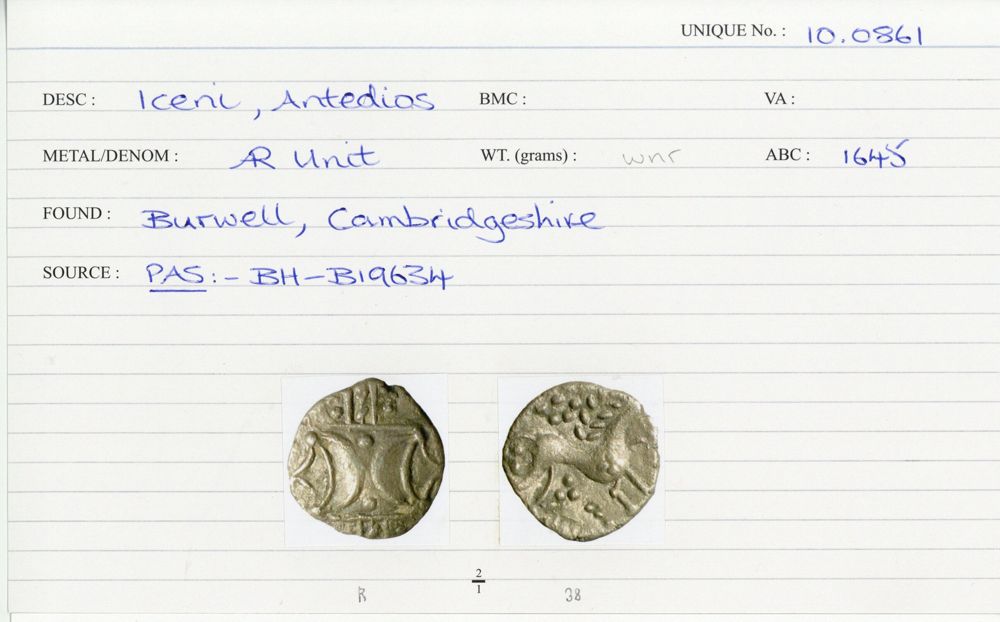 UNIQUE No. : 10.0861
DESC : Iceni, Antedios BMC : VA :
METAL/DENOM : AR Unit WT. (grams) : wnr ABC : 1645
FOUND : Burwell, Cambridgeshire
SOURCE : PAS:- BH-B19634
2
1
R 38